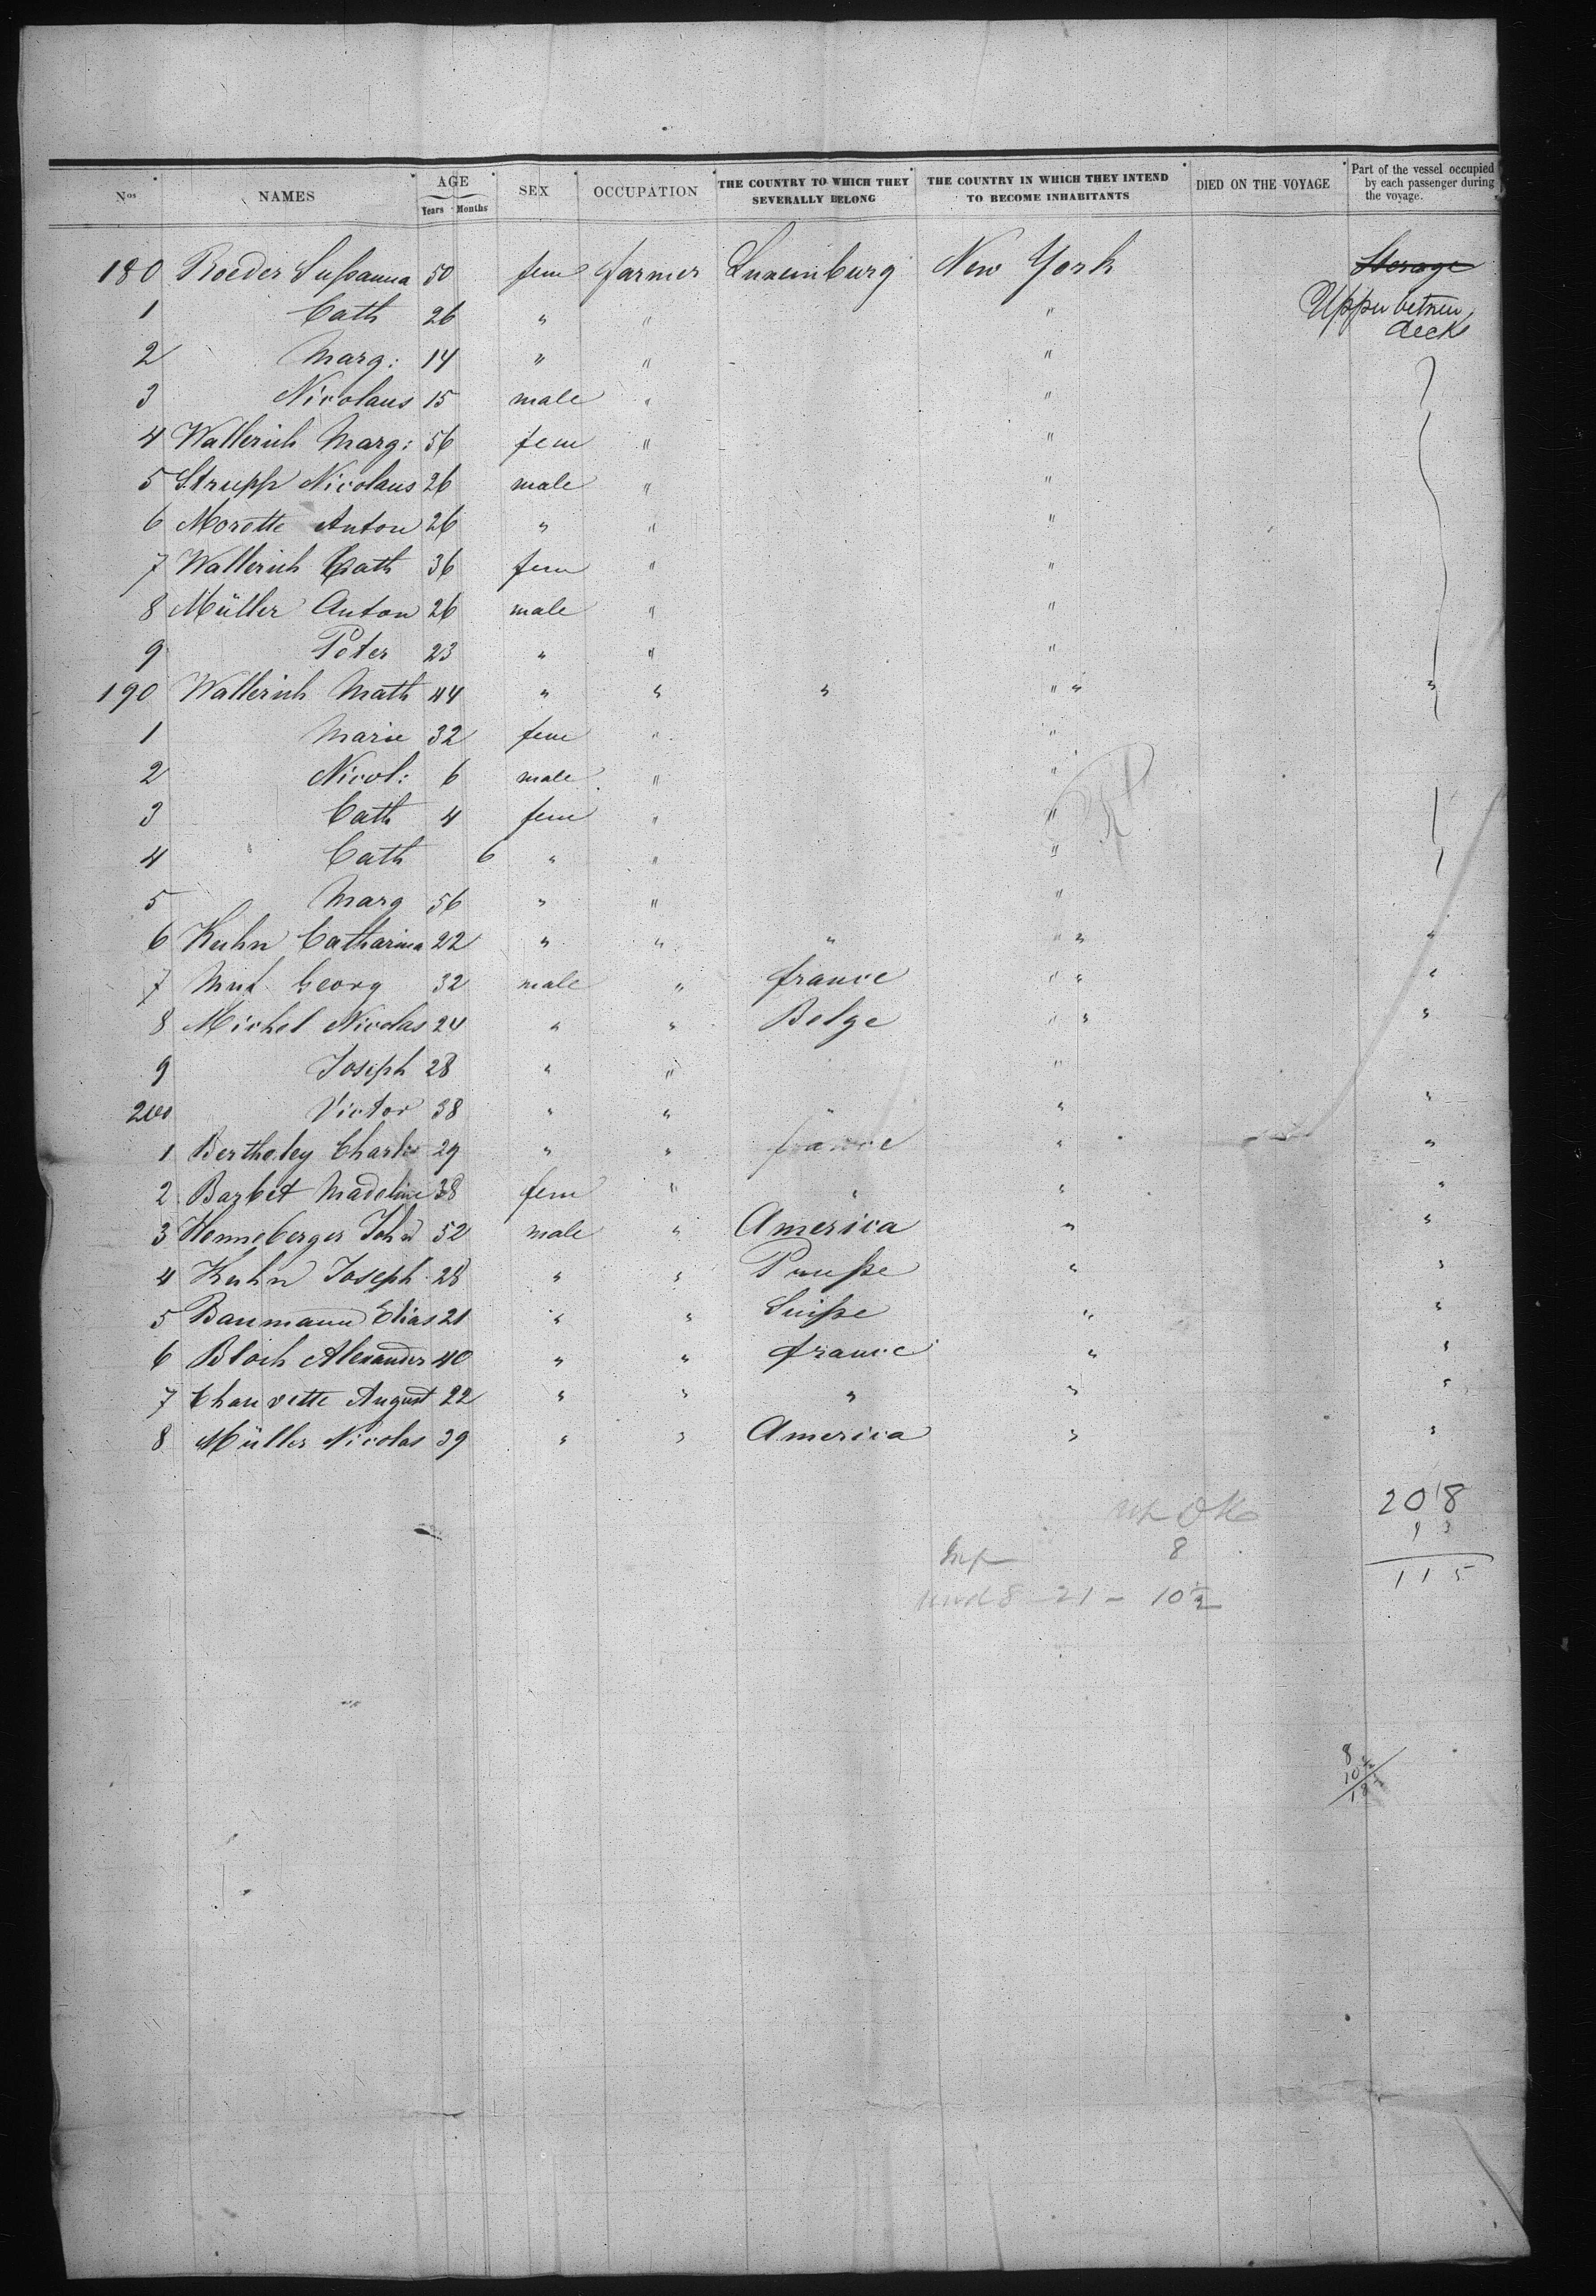 Nos NAMES AGE Years Months SEX OCCUPATION THE COUNTRY TO WHICH THEY SEVERALLY BELONG THE COUNTRY IN WHICH THEY INTEND TO BECOME INHABITANTS DIED ON THE VOYAGE Part of the vessel occupied by each passenger during the voyage.
180 Roeder Sußanna 50 fem farmer Luxemburg New York Sterage
1 Cath 26 " " " Upper betwen decks
2 Marg: 14 " " "
3 Nicolaus 15 male " "
4 Wallerich Marg: 56 fem " "
5 Strupp Nicolaus 26 male " "
6 Morette Anton 26 " " "
7 Wallerich Cath 36 fem " "
8 Müller Anton 26 male " "
9 Peter 23 " " "
190 Wallerich Math 44 " " " " " "
1 Marie 32 fem " "
2 Nicol: 6 male " "
3 Cath 4 fem " "
4 Cath 6 " " "
5 Marg 56 " " "
6 Kuhn Catharina 22 " " " " " "
7 Georg 32 male " france " " "
8 Michel Nicolas 24 " " Belge " " "
9 Joseph 28 " " "
200 Victor 38 " " " " "
1 Bertheley Charles 29 " " france " "
2 Barbet Madeline 38 fem " " " "
3 Henneberger John 52 male " America " "
4 Kuhn Joseph 28 " " Preuße " "
5 Baumann Elias 21 " " Suiße " "
6 Bloch Alexander 40 " " france " "
7 Chauvette August 22 " " " " "
8 Müller Nicolas 39 " " America " "
208
93
115
8
21 - 10½
8
10½
18½